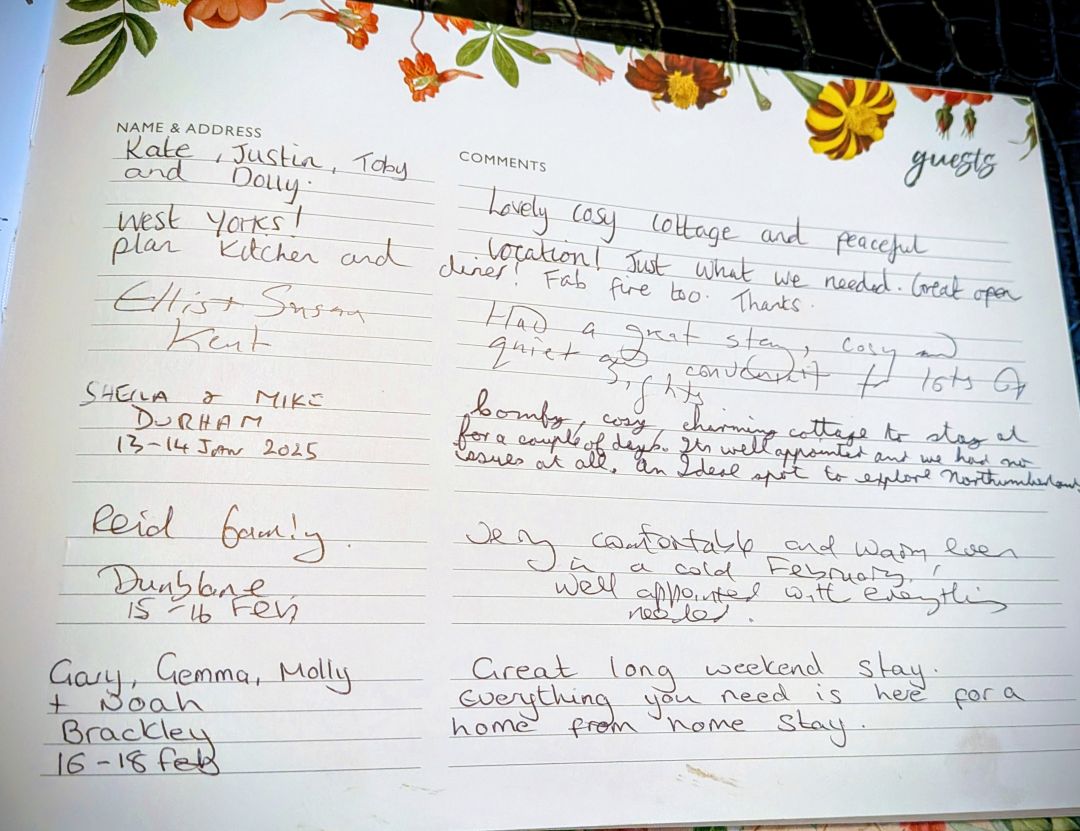 NAME & ADDRESS
COMMENTS
guests
Kate, Justin, Toby
and Dolly.
West Yorks!
Lovely cosy cottage and peaceful
location! Just what we needed. Great open
plan kitchen and diner! Fab fire too. Thanks.
Ellis + Susan
Kent
Had a great stay, cosy and
quiet and convenient for lots of
sights
SHEILA & MIKE
DURHAM
13-14 JAN 2025
cosy, charming cottage to stay at
for a couple of days. Its well appointed and we had no
issues at all. An Ideal spot to explore Northumberland
Reid family.
Dunblane
15-16 Feb
Very comfortable and warm even
in a cold February,
well appointed with everything
needed.
Gary, Gemma, Molly
+ Noah
Brackley
16-18 Feb
Great long weekend stay.
Everything you need is here for a
home from home stay.